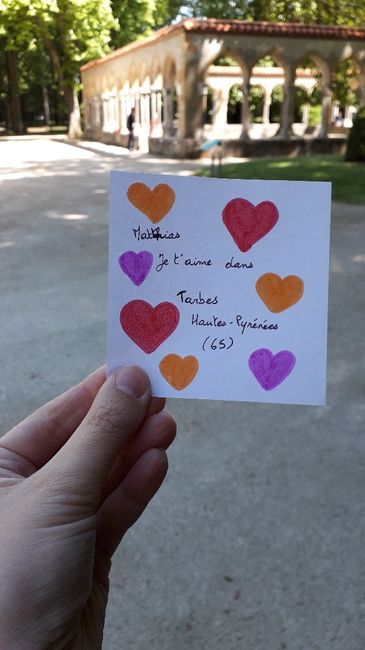 Matthias
Je t'aime dans
Tarbes
Hautes-Pyrénées
(65)